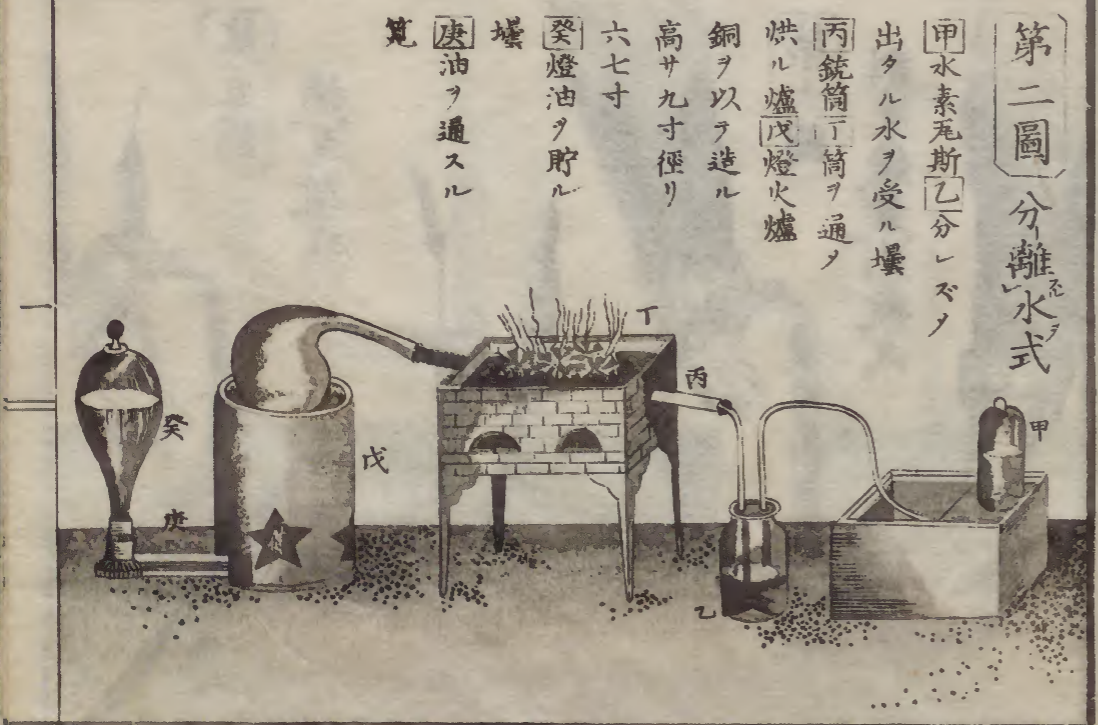 第二圖 分離スル水ヲ式
甲水素瓦斯乙分レズ〆
出タル水ヲ受ル壜
丙銃筒丁筒ヲ通〆
烘ル爐戊燈火爐
銅ヲ以テ造ル
高サ九寸徑リ
六七寸
癸燈油ヲ貯ル
壜
庚油ヲ通スル
筧
甲
丙
丁
乙
戊
癸
庚